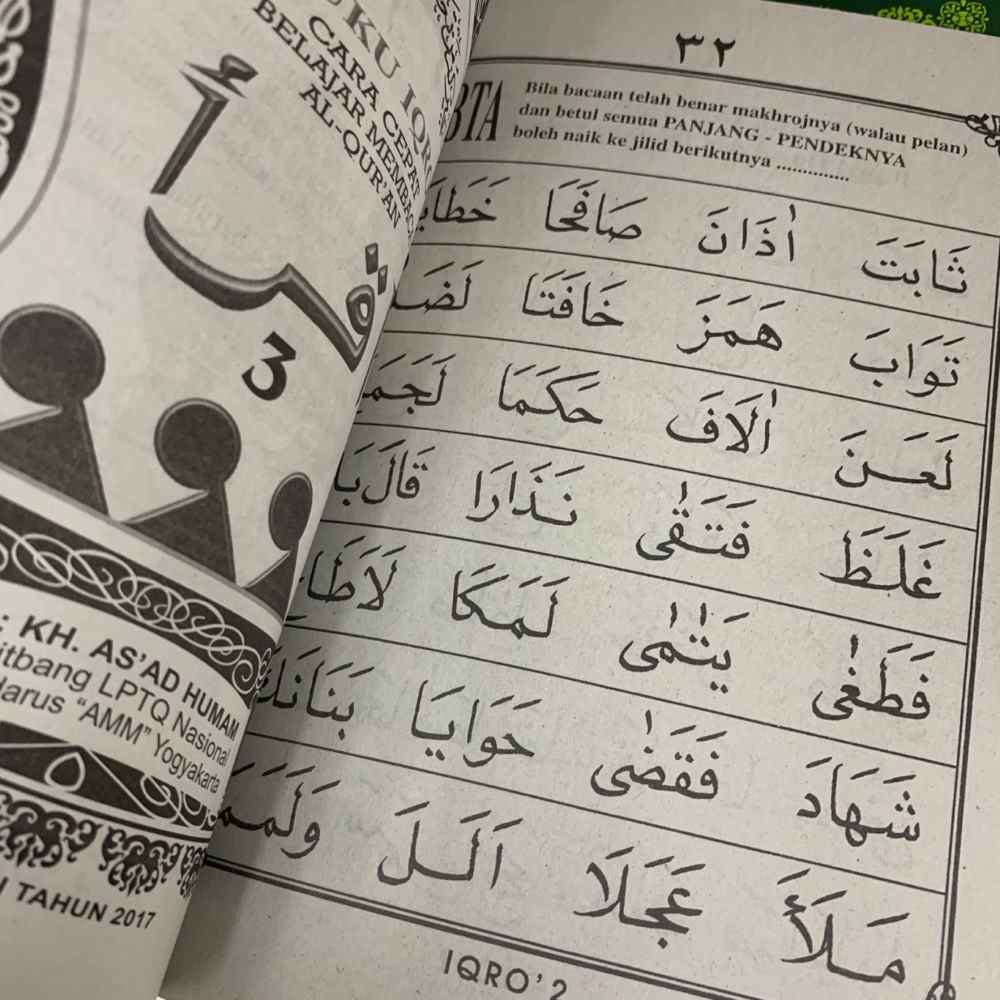 BUKU IQRO
CARA CEPAT
BELAJAR MEMBACA
AL-QUR'AN
3
: KH. AS'AD HUMAM
LPTQ Nasional
"AMM" Yogyakarta
TAHUN 2017
٣٢
BTA
Bila bacaan telah benar makhrojnya (walau pelan)
dan betul semua PANJANG - PENDEKNYA
boleh naik ke jilid berikutnya ..............
ثَابَتَ اٰذَانَ صَافَحَا
تَوَابَ هَمَزَ خَافَتَا
لَعَنَ اٰلَافَ حَكَمَا
غَلَظَ فَتَقٰى نَذَارَا
فَطَغٰى يَتٰمٰى لَمَكَا
شَهَادَ فَقَضٰى حَوَايَا
مَلَأَ عَجَلَا اَلَلَ
IQRO' 2